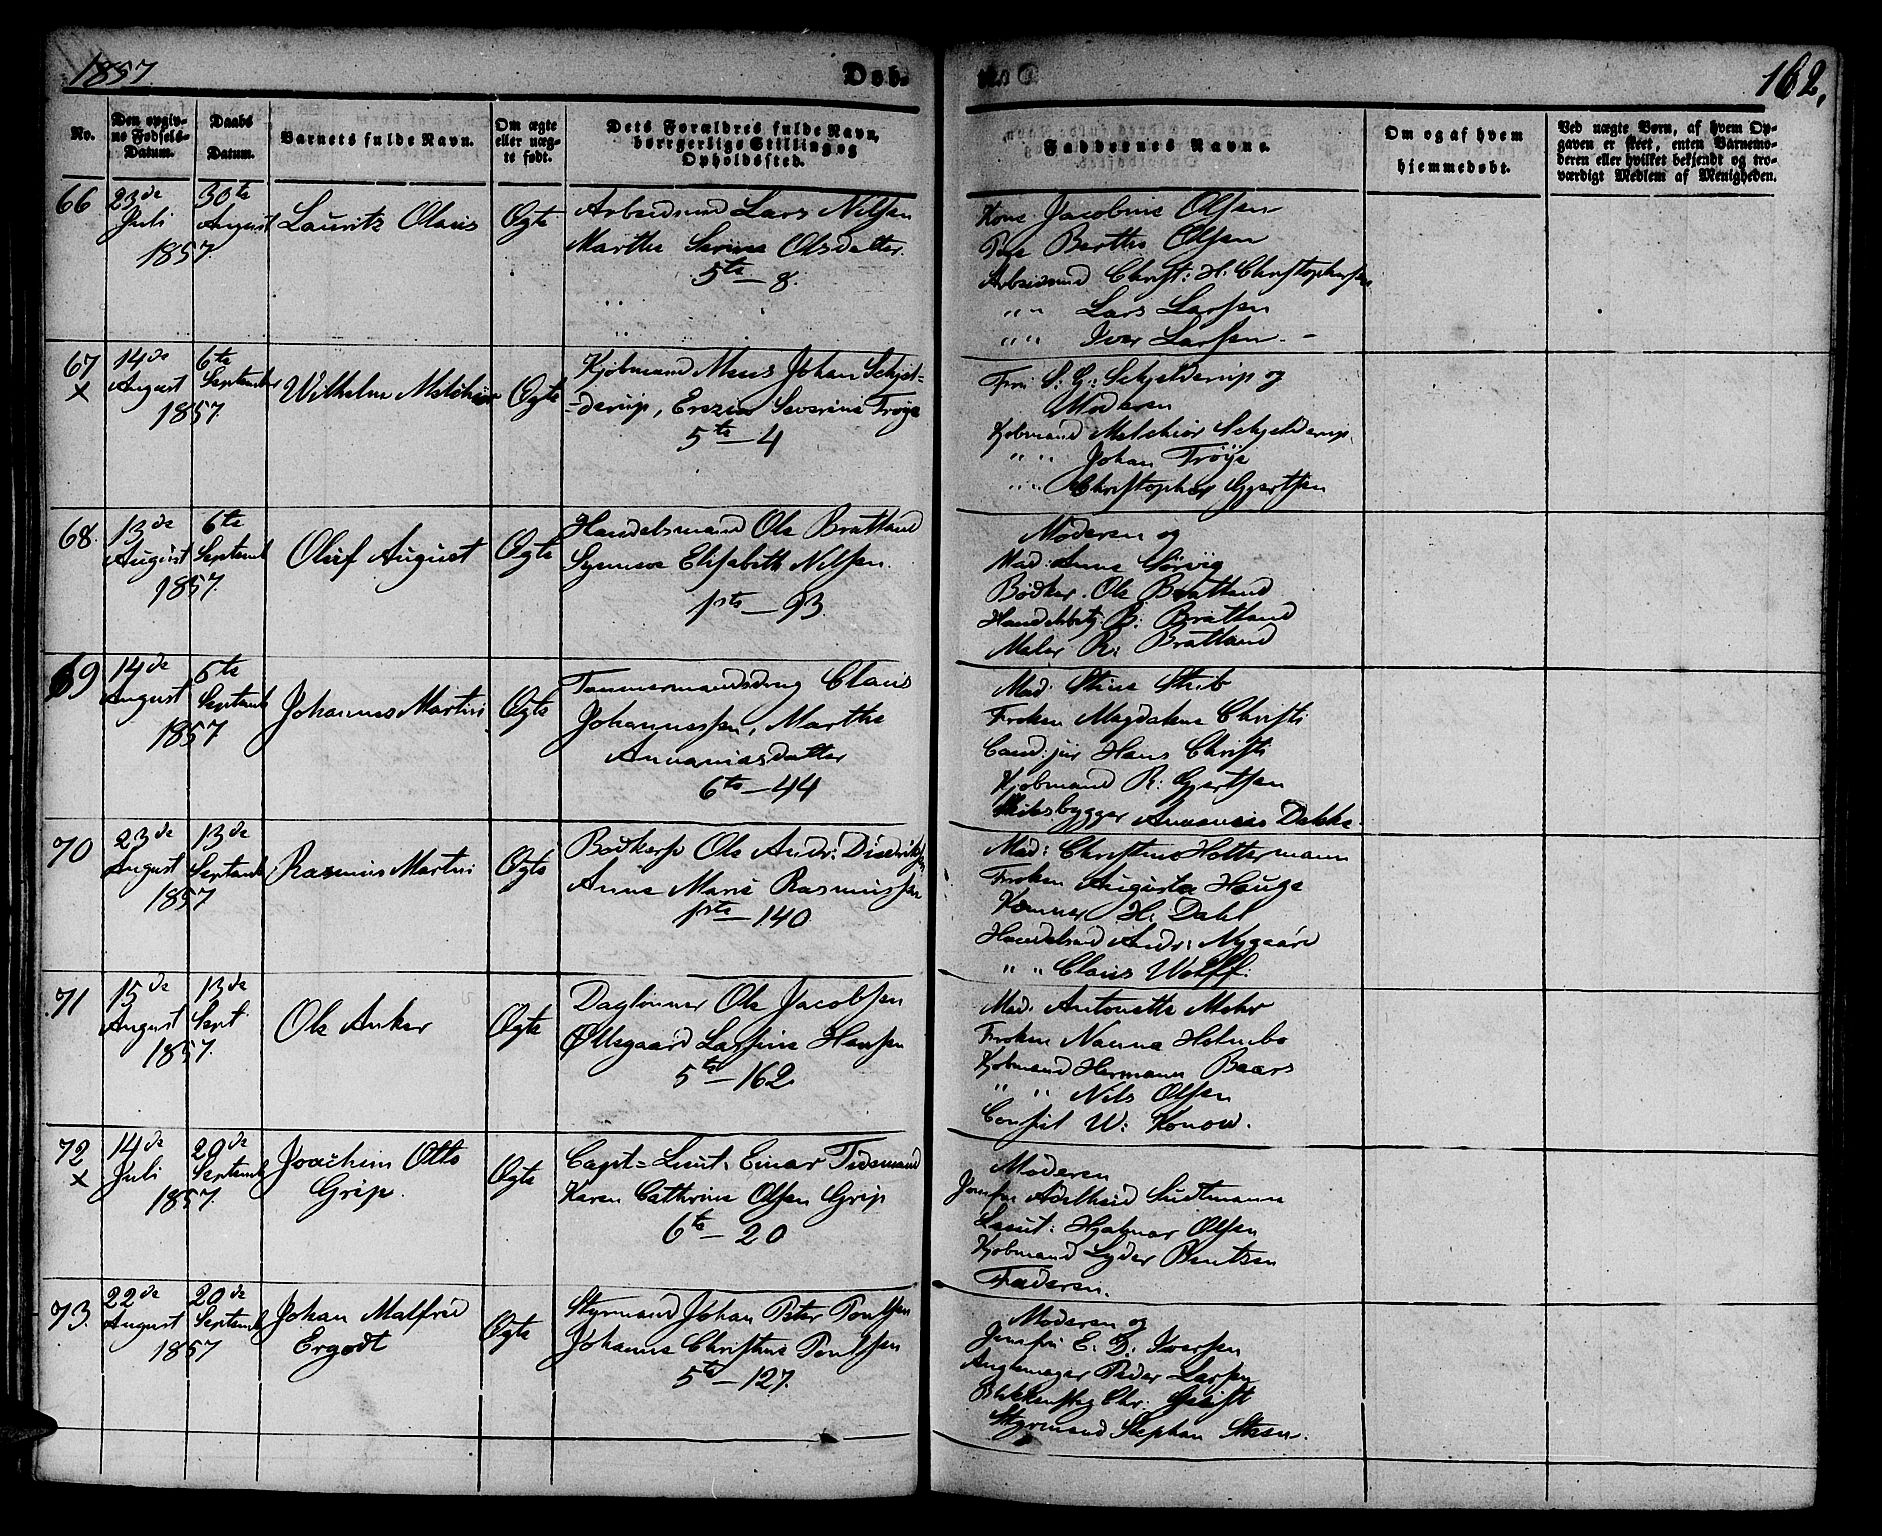 1857.
Døb.
162.
No.
Den opgiv-
ne Fødsels-
Datum.
Daabs
Datum.
Barnets fulde Navn.
Om ægte
eller uæg-
te født.
Dets Forældres fulde Navn,
borgerlige Stilling og
Opholdssted.
Faddernes Navne.
Om og af hvem
hjemmedøbt.
Ved uægte Børn, af hvem Op-
gaven er skeet, enten Barnemo-
deren eller hvilket bekjendt og tro-
værdigt Medlem af Menigheden.
66
23de
Juli
1857.
30te
August
Lauritz Olaus
Ægte
Arbeidsmd Lars Nilsen
Marthe Serine Olsdatter.
5te — 8.
Kone Jacobine Olsen
Pige Berthe Olsen
Arbeidsmd Christ: H. Christophersen
" " Lars Larsen
" " Iver Larsen. -
67
x
14de
August
1857
6te
Septembr
Wilhelm Melchior
Ægte
Kjøbmand Meus Johan Schjel-
-derup, Severine Trøye
5te — 4
Fru S: G: Schjelderup og
Moderen
Kjøbmand Melchior Schjelderup.
" " Johan Trøye
" " Christopher Gjertsen
68.
13de
August
1857.
6te
Septemb
Oluf August
Ægte
Handelsmand Ole Brattland
Elisabeth Nilsen.
1ste — 93.
Moderen og
Mad: Anne Sørvig
Bødker. Ole Brattland
B: Brattland
Maler R: Brattland
69
14de
August
1857
6te
Septemb
Johannes Martin
Ægte
Tømmermandsdrng Claus
Johannessen, Marthe
Annaniasdatter
6te — 44
Mad: Stine Stub
Frøken Magdalene Christi
Cand: jur Hans Christi
Kjøbmand R: Gjertsen
Skibsbygger Annanias Dekke.
70
23de
August
1857
13de
Septembr
Rasmus Martin
Ægte
Bødkersv Ole Andr: Diedriksen
Anne Marie Rasmussen
1ste — 140
Mad: Christine Holtermann
Frøken Augusta Hauge
Kæmner H: Dahl
Handelsmd Andr: Nygaard
" " Claus Wolff.
71
15de
August
1857.
13de
Sept.
Ole Anker
Ægte
Daglønner Ole Jacobsen
Øllegaard Larsine Hansen
5te — 162.
Mad. Antonette Mohr
Frøken Nanna Holmbo
Kjøbmand Hermann Baars
" " Nils Olsen
Consul W: Konow.
72
x
14de
Juli
1857.
20de
Septemb
Joachim Otto
Grip.
Ægte
Capt=Lieut: Einar Tidemand
Karen Cathrine Olsen Grip
6te — 20
Moderen
Jomfru Adelheid Sudtmann
Lieut: Hjalmar Olsen
Kjøbmand Lyder Bentsen
Faderen.
73.
22de
August
1857
20de
Septemb
Johan Malfred
Ergodt
Ægte
Styrmand Johan Peter Pontsen
Johanne Christine Pontsen
5te — 127.
Moderen og
Jomfru E. D: Iversen
Peder Larsen
Chr: Geist
Styrmand Stephan Steen.